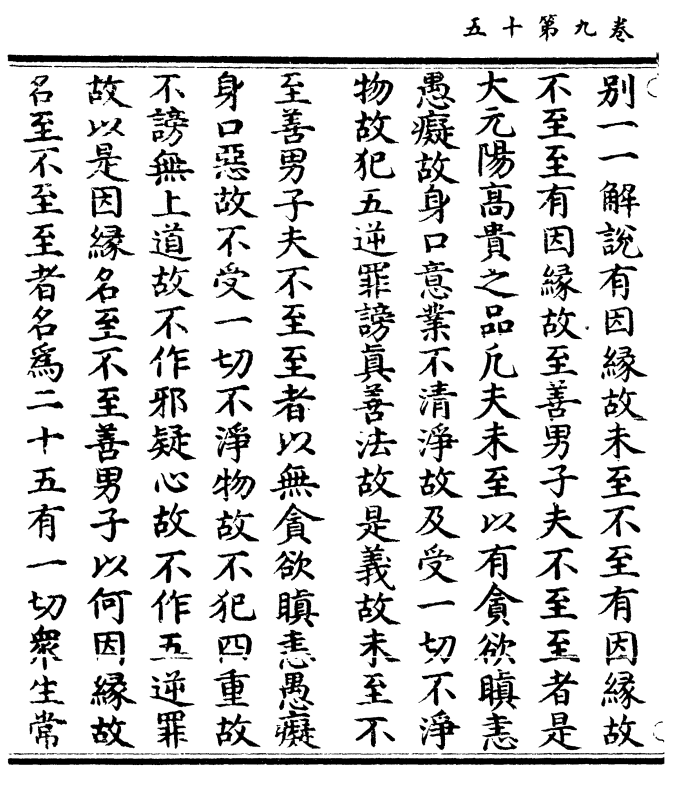 卷九第十五
別一一解說有因緣故未至不至有因緣故
不至至有因緣故至善男子夫不至至者是
大元陽高貴之品凡夫未至以有貪欲瞋恚
愚癡故身口意業不清淨故及受一切不淨
物故犯五逆罪謗眞善法故是義故未至不
至善男子夫不至至者以無貪欲瞋恚愚癡
身口惡故不受一切不淨物故不犯四重故
不謗無上道故不作邪疑心故不作五逆罪
故以是因緣名至不至善男子以何因緣故
名至不至至者名爲二十五有一切衆生常